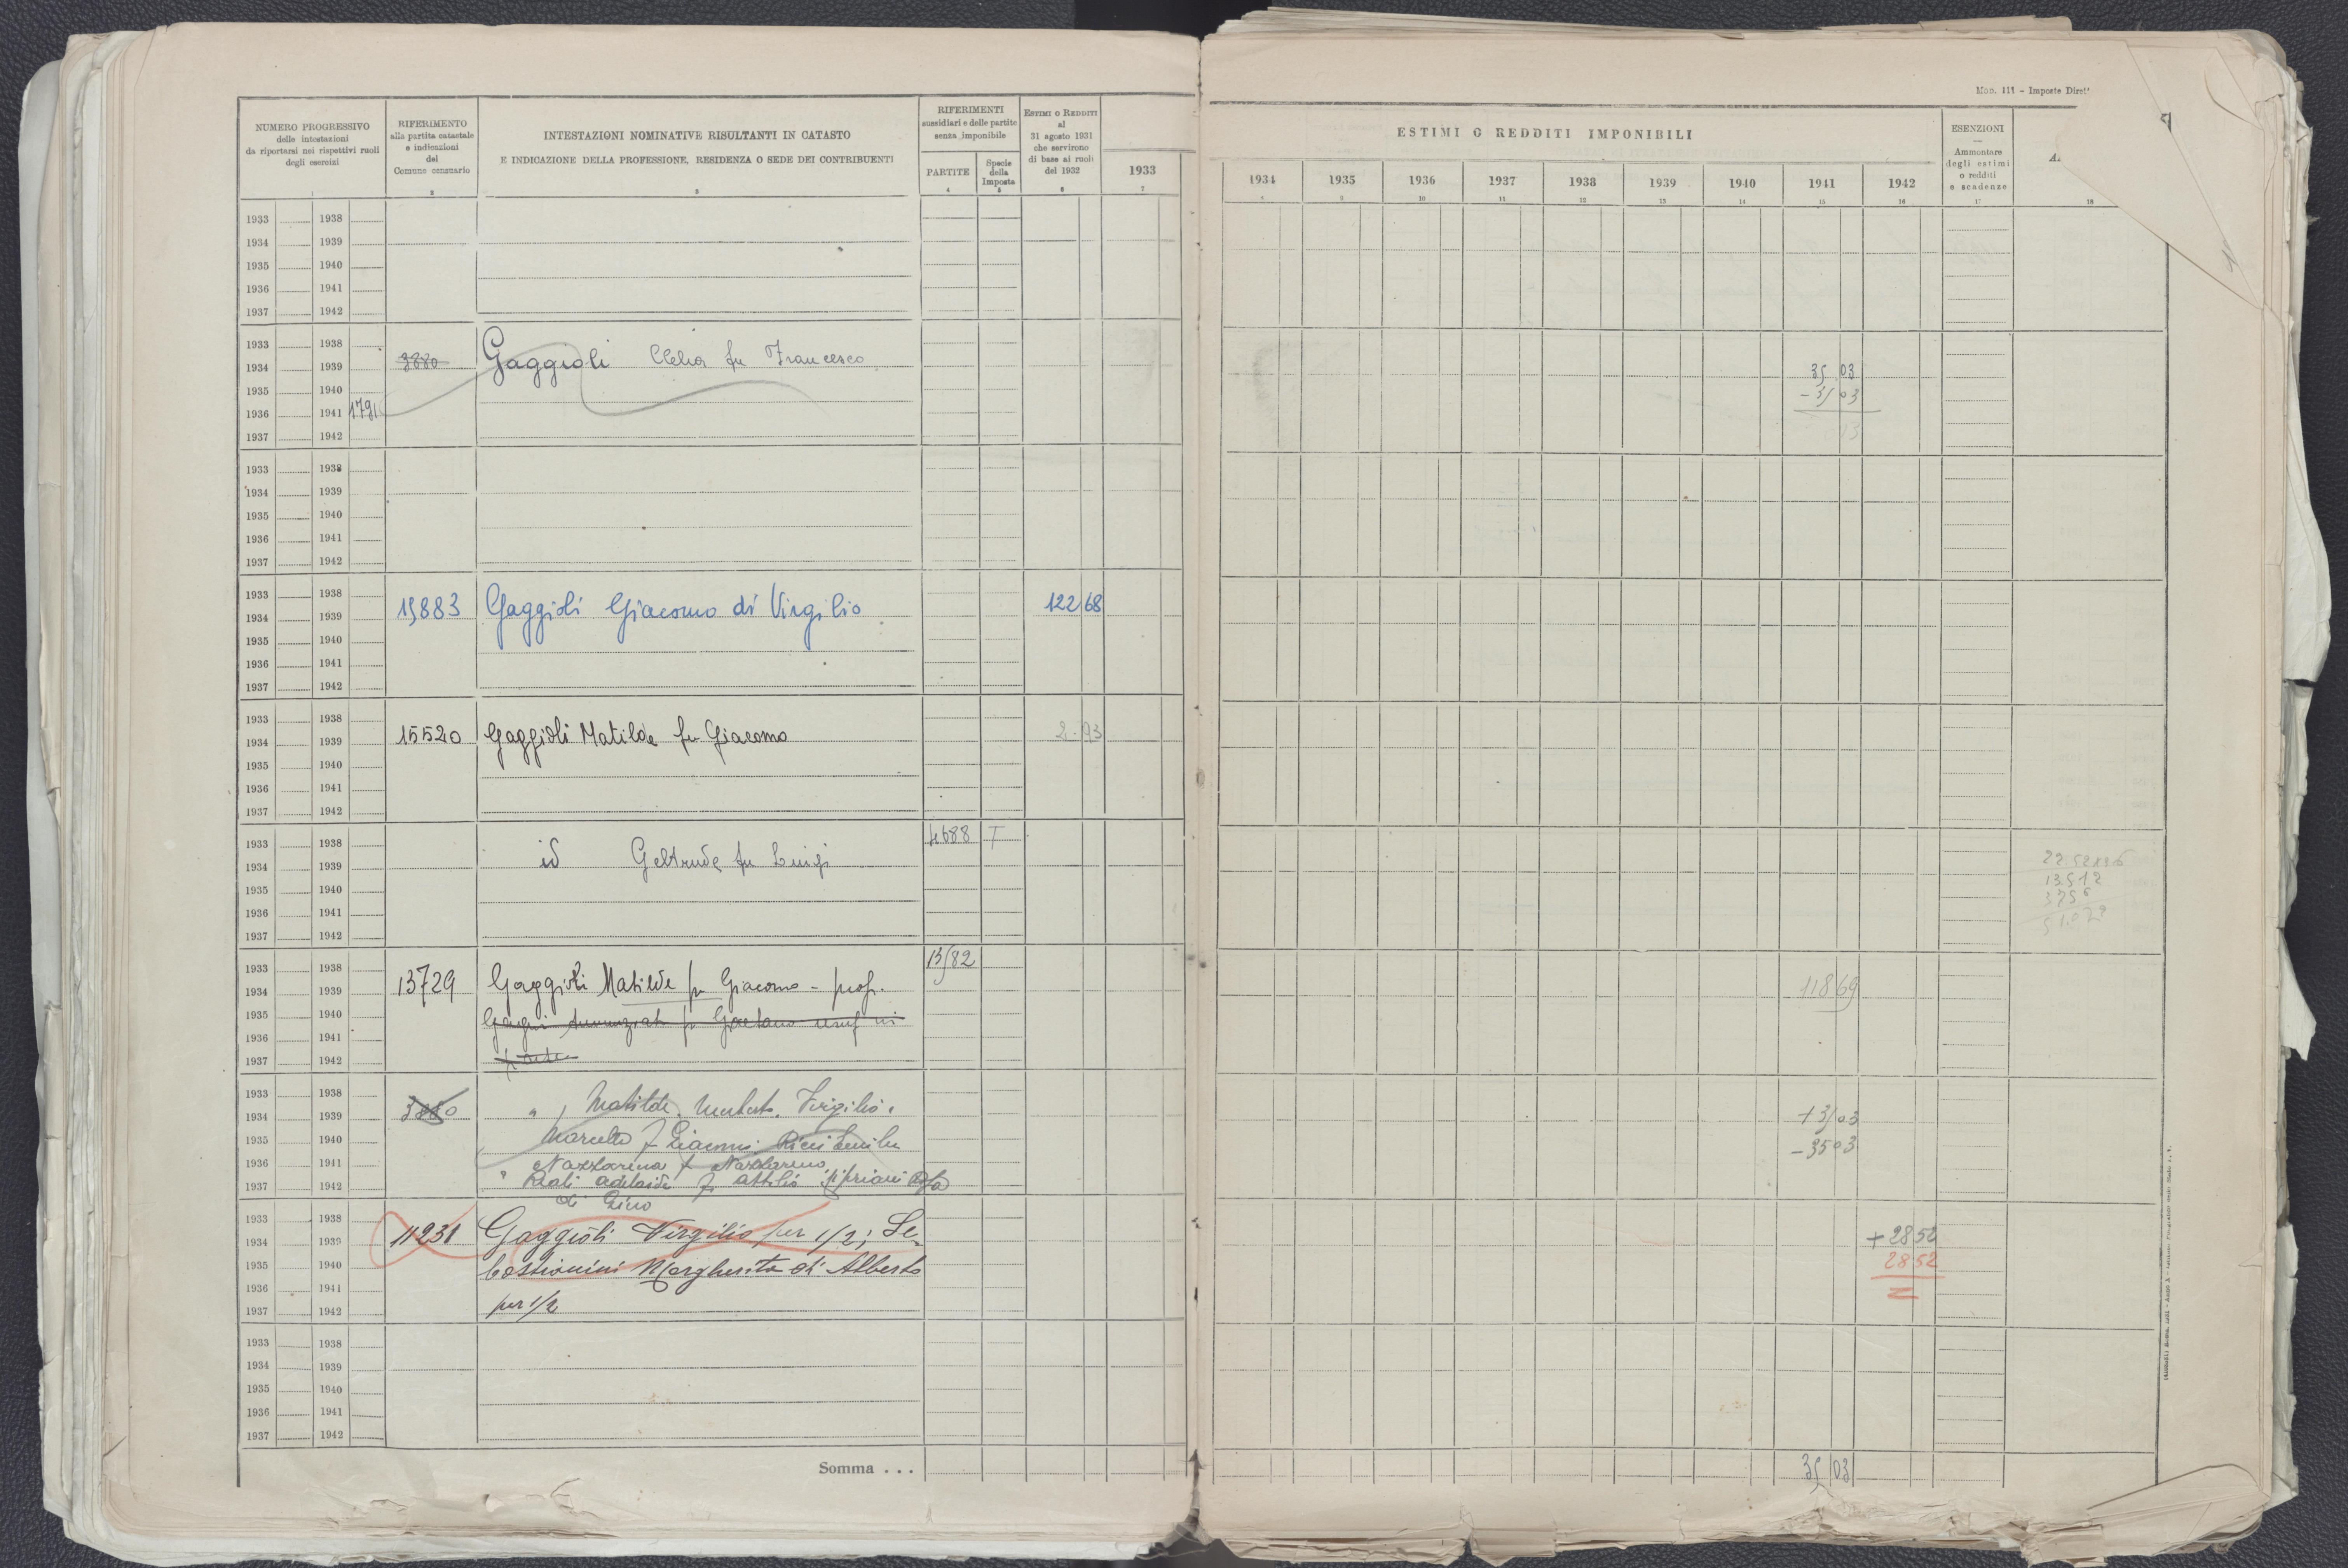 Mod. 111 - Imposte Diret
NUMERO PROGRESSIVO
delle intestazioni
da riportarsi nei rispettivi ruoli
degli esercizi
1
RIFERIMENTO
alla partita catastale
e indicazioni
del
Comune censuario
2
INTESTAZIONI NOMINATIVE RISULTANTI IN CATASTO
E INDICAZIONE DELLA PROFESSIONE, RESIDENZA O SEDE DEI CONTRIBUENTI
3
RIFERIMENTI
sussidiari e delle partite
senza imponibile
PARTITE
4
Specie
della
Imposta
5
ESTIMI O REDDITI
al
31 agosto 1931
che servirono
di base ai ruoli
del 1932
6
1933
7
ESTIMI O REDDITI IMPONIBILI
1934 1935 1936 1937 1938 1939 1940 1941 1942
9 10 11 12 13 14 15 16
ESENZIONI
Ammontare
degli estimi
o redditi
e scadenze
17
18
1933 1938
1934 1939
1935 1940
1936 1941
1937 1942
1933 1938
1934 1939 3880 Gaggioli Clelia fu Francesco 35 03
1935 1940 - 35 03
1936 1941 1791
1937 1942
1933 1938
1934 1939
1935 1940
1936 1941
1937 1942
1933 1938
1934 1939 15883 Gaggioli Giacomo di Virgilio 122 68
1935 1940
1936 1941
1937 1942
1933 1938
1934 1939 15520 Gaggioli Matilde fu Giacomo 2.93
1935 1940
1936 1941
1937 1942
1933 1938 4688 T
1934 1939 id Geltrude fu Luigi
1935 1940 13.512
1936 1941
1937 1942
1933 1938 13582
1934 1939 13729 Gaggioli Matilde fu Giacomo - prop. 118 69
1935 1940 fu Gaetano usuf
1936 1941
1937 1942
1933 1938 " Matilde, Umberto, Virgilio,
1934 1939 3880 + 35 03
1935 1940 Marcello f Giacomo. Ricci - 35 03
1936 1941 Nazzarena f Nazzareno
1937 1942 " Reali Adelaide f Attilio, Cipriani
di Gino
1933 1938
1934 1939 11231 Gaggioli Virgilio per 1/2; Se- + 28 52
1935 1940 bastianini Margherita di Alberto 28 52
1936 1941
1937 1942 per 1/2
1933 1938
1934 1939
1935 1940
1936 1941
1937 1942
Somma . . . 35 03